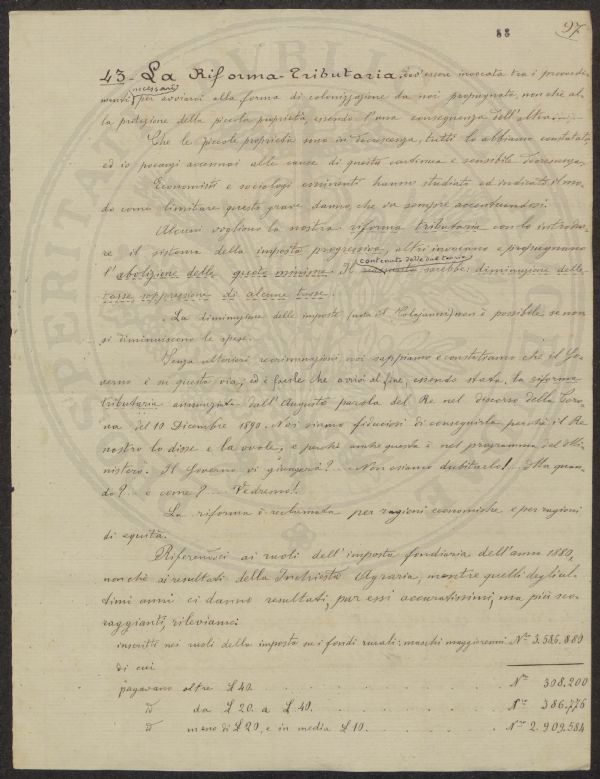 88
97
43 - La Riforma Tributaria dev'essere invocata tra i provvedi-
necessarii
menti, per avviarci alla forma di colonizzazione da noi propugnata, nonchè al-
la protezione della piccola proprietà, essendo l'una conseguenza dell'altra.
Che le piccole proprietà sono in decrescenza, tutti lo abbiamo constatato,
ed io poc'anzi accennai alle cause di questa continua e sensibile decrescenza.
Economisti e sociologi eminenti hanno studiato ed indicato il mo-
do come limitare questo grave danno, che va sempre accentuandosi.
Alcuni vogliono la nostra riforma tributaria con lo introdur-
re il sistema della imposta progressiva, altri invocano e propugnano
contenuto delle due teorie
l'abolizione delle quote minime. Il sarebbe: diminuzione delle
tasse, soppressione di alcune tasse.
La diminuzione delle imposte (nota il Colajanni) non è possibile se non
si diminuiscono le spese.
Senza ulteriori recriminazioni noi sappiamo e constatiamo che il Go-
verno è su questa via, ed è facile che arrivi al fine, essendo stata la riforma
tributaria annunziata dall'Augusta parola del Re nel discorso della Coro-
na del 10 Dicembre 1890. Noi siamo fiduciosi di conseguirla perchè il Re
nostro lo disse e la vuole, e perchè anche questa è nel programma del Mi-
nistero. Il Governo vi giungerà? Non osiamo dubitarlo! Ma quan-
do? e come? Vedremo!
La riforma è reclamata per ragioni economiche e per ragioni
di equità.
Riferendoci ai ruoli dell'imposta fondiaria dell'anno 1880,
nonchè ai resultati della Inchiesta Agraria, mentre quelli degli ul-
timi anni ci danno resultati, pur essi accuratissimi, ma più sco-
raggianti, rileviamo:
inscritti nei ruoli della imposta su i fondi rurali: maschi maggiorenni N.° 3.586.880
di cui
pagavano oltre £ 40. N.° 308.200
id da £ 20. a £ 40. N.° 386.776
id meno di £ 20, e in media £ 10. N.° 2.909.584